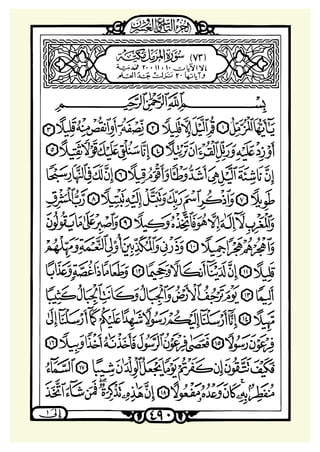 الجزء التاسع والعشرون
(٧٣) سُورَةُ المُزَّمِّلِ مَكِّيَّة
إلا الآيات ١٠ و ١١ و ٢٠ فمدنية
وآياتها ٢٠ نزلت بعد القلم
بِسْمِ ٱللَّهِ ٱلرَّحْمَٰنِ ٱلرَّحِيمِ
يَٰٓأَيُّهَا ٱلْمُزَّمِّلُ ١ قُمِ ٱلَّيْلَ إِلَّا قَلِيلًا ٢ نِّصْفَهُۥٓ أَوِ ٱنقُصْ مِنْهُ قَلِيلًا ٣
أَوْ زِدْ عَلَيْهِ وَرَتِّلِ ٱلْقُرْءَانَ تَرْتِيلًا ٤ إِنَّا سَنُلْقِى عَلَيْكَ قَوْلًا ثَقِيلًا ٥
إِنَّ نَاشِئَةَ ٱلَّيْلِ هِىَ أَشَدُّ وَطْـًٔا وَأَقْوَمُ قِيلًا ٦ إِنَّ لَكَ فِى ٱلنَّهَارِ سَبْحًا
طَوِيلًا ٧ وَٱذْكُرِ ٱسْمَ رَبِّكَ وَتَبَتَّلْ إِلَيْهِ تَبْتِيلًا ٨ رَّبُّ ٱلْمَشْرِقِ
وَٱلْمَغْرِبِ لَآ إِلَٰهَ إِلَّا هُوَ فَٱتَّخِذْهُ وَكِيلًا ٩ وَٱصْبِرْ عَلَىٰ مَا يَقُولُونَ
وَٱهْجُرْهُمْ هَجْرًا جَمِيلًا ١٠ وَذَرْنِى وَٱلْمُكَذِّبِينَ أُو۟لِى ٱلنَّعْمَةِ وَمَهِّلْهُمْ
قَلِيلًا ١١ إِنَّ لَدَيْنَآ أَنكَالًا وَجَحِيمًا ١٢ وَطَعَامًا ذَا غُصَّةٍ وَعَذَابًا
أَلِيمًا ١٣ يَوْمَ تَرْجُفُ ٱلْأَرْضُ وَٱلْجِبَالُ وَكَانَتِ ٱلْجِبَالُ كَثِيبًا
مَّهِيلًا ١٤ إِنَّآ أَرْسَلْنَآ إِلَيْكُمْ رَسُولًا شَٰهِدًا عَلَيْكُمْ كَمَآ أَرْسَلْنَآ إِلَىٰ
فِرْعَوْنَ رَسُولًا ١٥ فَعَصَىٰ فِرْعَوْنُ ٱلرَّسُولَ فَأَخَذْنَٰهُ أَخْذًا وَبِيلًا ١٦
فَكَيْفَ تَتَّقُونَ إِن كَفَرْتُمْ يَوْمًا يَجْعَلُ ٱلْوِلْدَٰنَ شِيبًا ١٧ ٱلسَّمَآءُ
مُنفَطِرٌۢ بِهِۦ كَانَ وَعْدُهُۥ مَفْعُولًا ١٨ إِنَّ هَٰذِهِۦ تَذْكِرَةٌ فَمَن شَآءَ ٱتَّخَذَ
٤٩٠